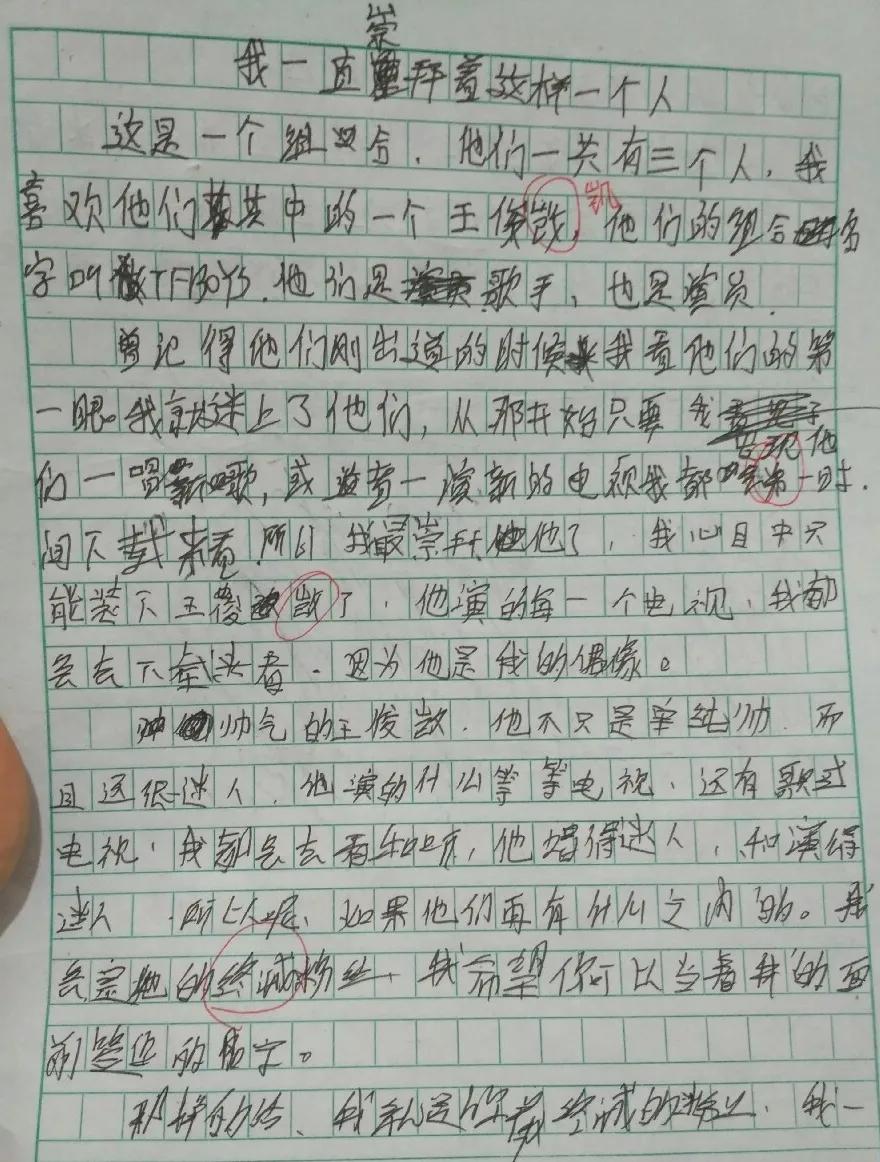 我一直崇拜着这样一个人
这是一个组合．他们一共有三个人，我
喜欢他们其中的一个王俊凯，他们的组合名
字叫TFBOYS．他们是歌手、也是演员．
曾记得他们刚出道的时候我看他们的第
一眼。我就迷上了他们，从那开始只要我
发现他
们一唱新歌，或者一演新的电视我都第一时．
间下载来看．所以我最崇拜他了，我心目中只
能装下王俊凯了．他演的每一个电视．我都
会去下载来看．因为他是我的偶像。
帅气的王俊凯．他不只是单纯帅．而
且还很迷人．他演的什么等等电视．还有歌或
电视．我都会去看和听，他唱得迷人，和演得
迷人．所以呢．如果他们再有什么之内的。我
会是他的终诚粉丝．我希望你可以当着我的面
前签你的名字。
那样的话．我就是你最终诚的粉丝．我一